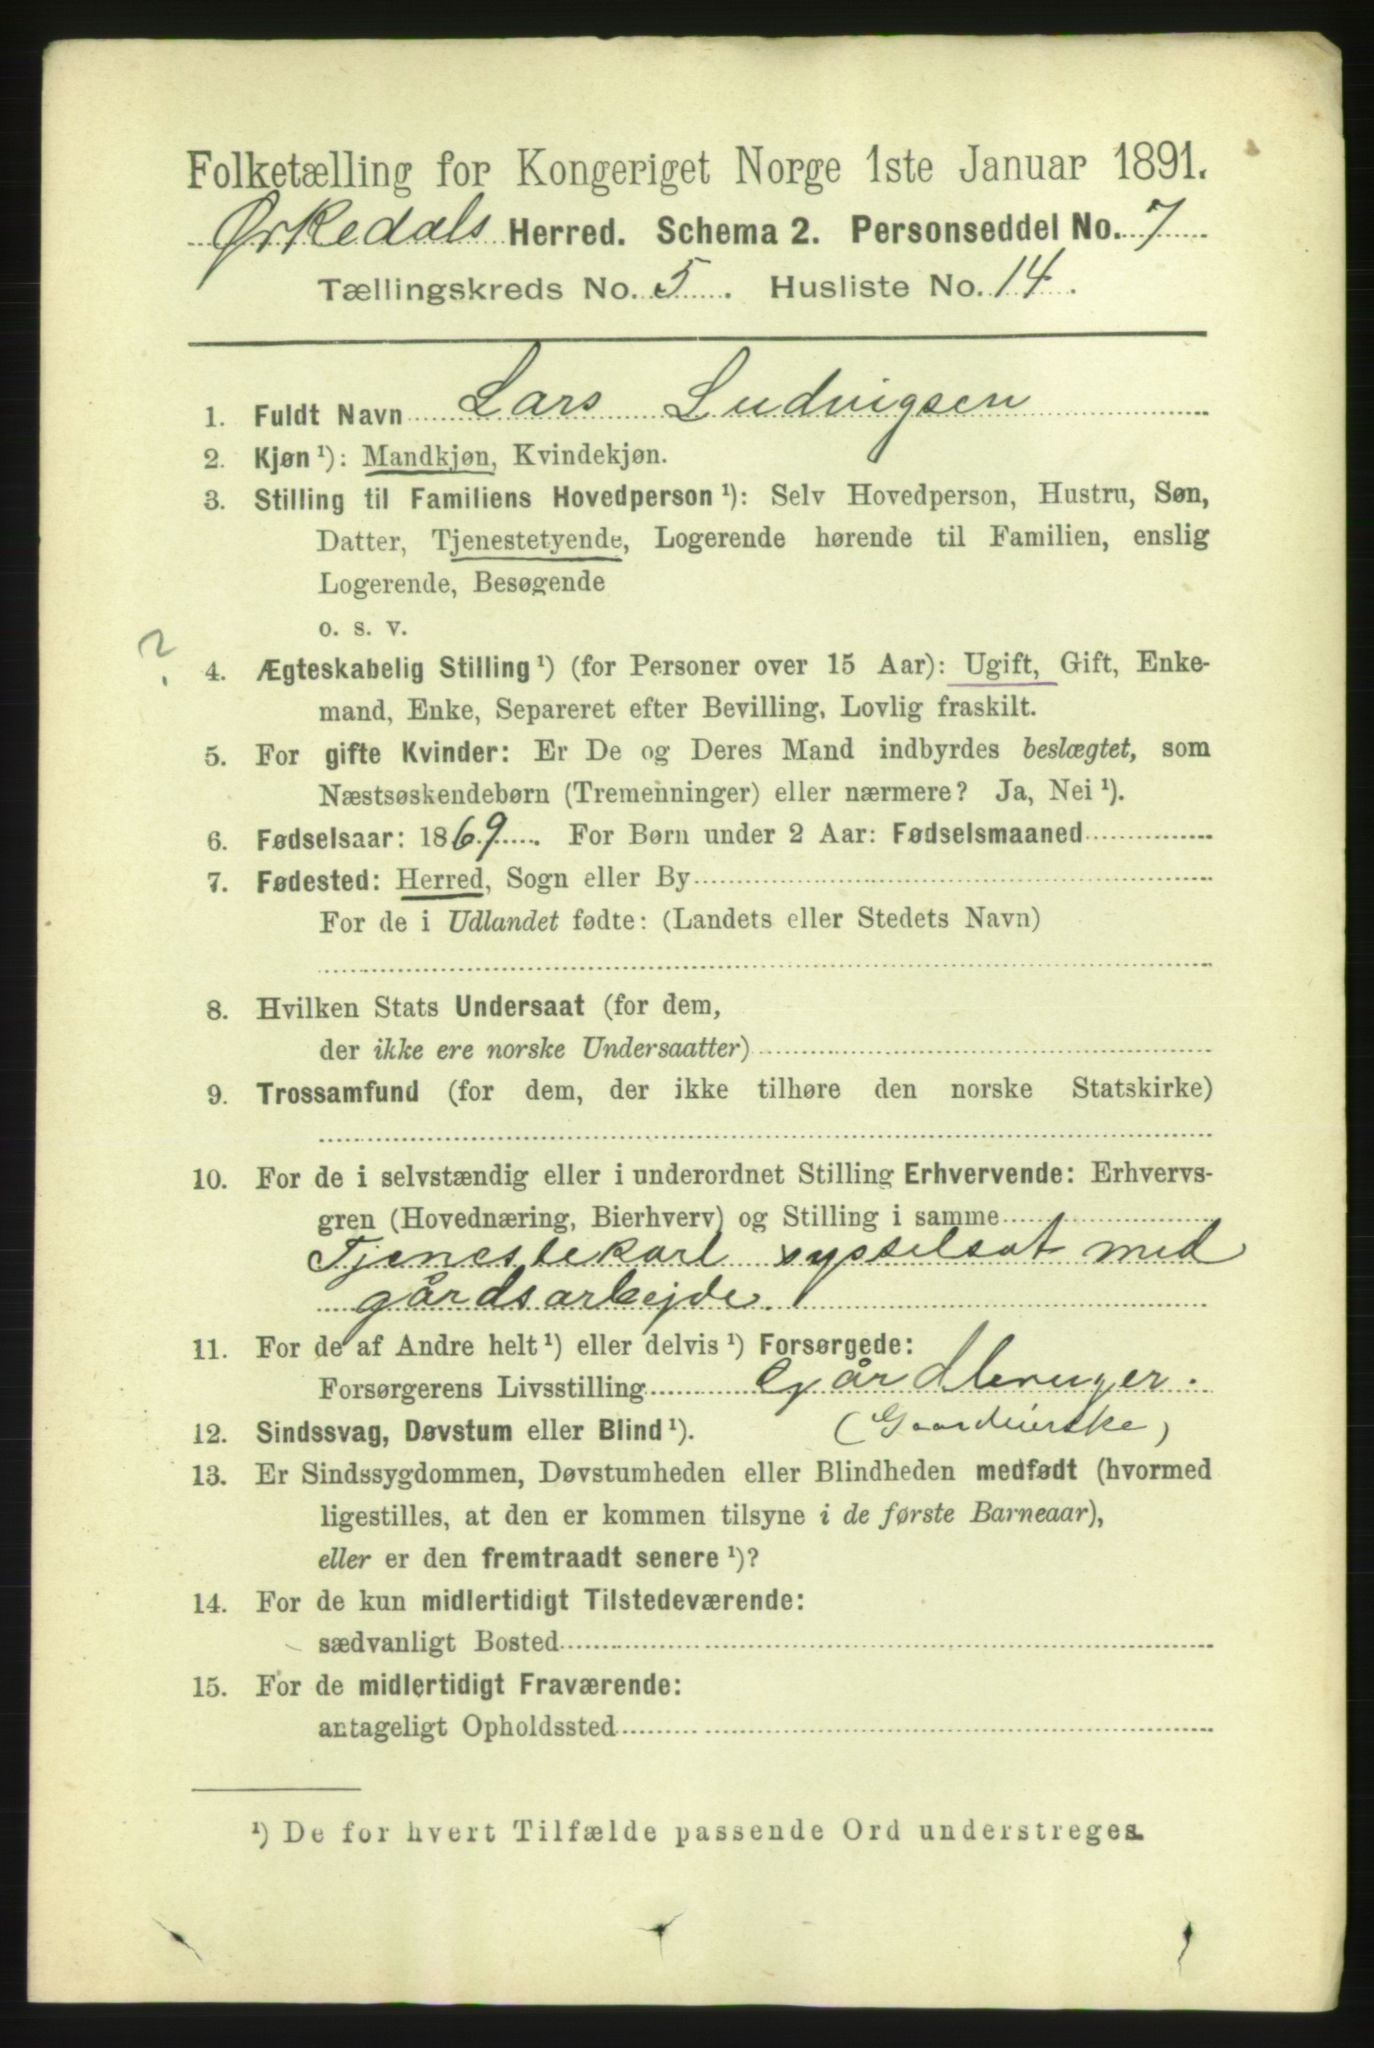 Folketælling for Kongeriget Norge 1ste Januar 1891.
Ørkedals Herred. Schema 2. Personseddel No. 7
Tællingskreds No. 5. Husliste No. 14.
1. Fuldt Navn Lars Ludvigsen
2. Kjøn ¹): Mandkjøn, Kvindekjøn.
3. Stilling til Familiens Hovedperson ¹): Selv Hovedperson, Hustru, Søn,
Datter, Tjenestetyende, Logerende hørende til Familien, enslig
Logerende, Besøgende
o. s. v.
?
4. Ægteskabelig Stilling ¹) (for Personer over 15 Aar): Ugift, Gift, Enke-
mand, Enke, Separeret efter Bevilling, Lovlig fraskilt.
5. For gifte Kvinder: Er De og Deres Mand indbyrdes beslægtet, som
Næstsøskendebørn (Tremenninger) eller nærmere? Ja, Nei ¹).
6. Fødselsaar: 1869. For Børn under 2 Aar: Fødselsmaaned
7. Fødested: Herred, Sogn eller By
For de i Udlandet fødte: (Landets eller Stedets Navn)
8. Hvilken Stats Undersaat (for dem,
der ikke ere norske Undersaatter)
9. Trossamfund (for dem, der ikke tilhøre den norske Statskirke)
10. For de i selvstændig eller i underordnet Stilling Erhvervende: Erhvervs-
gren (Hovednæring, Bierhverv) og Stilling i samme
Tjenestekarl sysselsat med
gårdsarbejde.
11. For de af Andre helt ¹) eller delvis ¹) Forsørgede:
Forsørgerens Livsstilling Gårdbruger.
12. Sindssvag, Døvstum eller Blind ¹).
13. Er Sindssygdommen, Døvstumheden eller Blindheden medfødt (hvormed
ligestilles, at den er kommen tilsyne i de første Barneaar),
eller er den fremtraadt senere ¹)?
14. For de kun midlertidigt Tilstedeværende:
sædvanligt Bosted
15. For de midlertidigt Fraværende:
antageligt Opholdssted
¹) De for hvert Tilfælde passende Ord understreges.